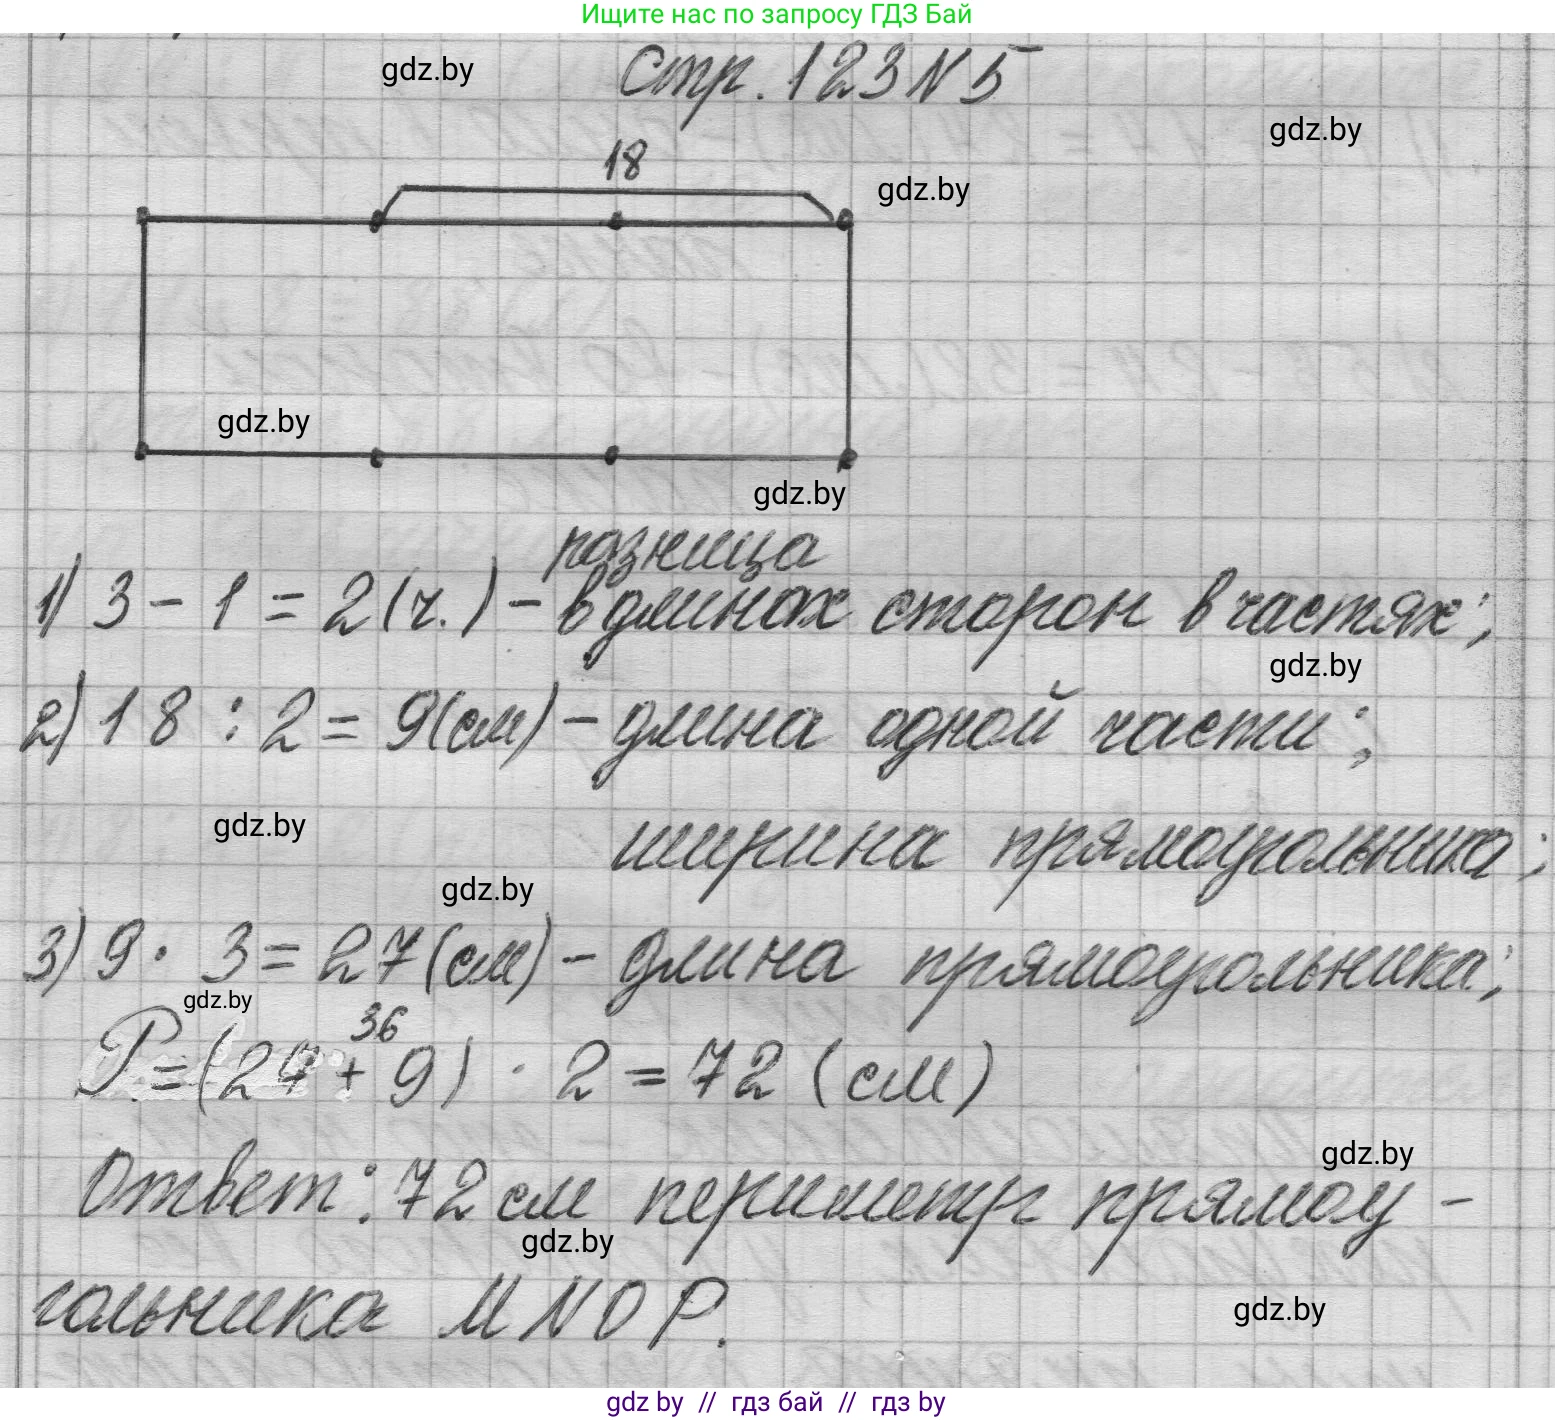 Ищите нас по запросу ГДЗ Бай
gdz.by
Стр. 123 N 5
gdz.by
18
gdz.by
gdz.by
gdz.by
разница
1) 3 - 1 = 2 (ч.) - в длинах сторон в частях;
gdz.by
2) 18 : 2 = 9 (см) - длина одной части;
gdz.by
ширина прямоугольника;
gdz.by
3) 9 · 3 = 27 (см) - длина прямоугольника;
gdz.by
36
P = (27 + 9) · 2 = 72 (см)
gdz.by
Ответ: 72 см периметр прямоу -
gdz.by
гольника MNOP.
gdz.by
gdz by // гдз бай // гдз by